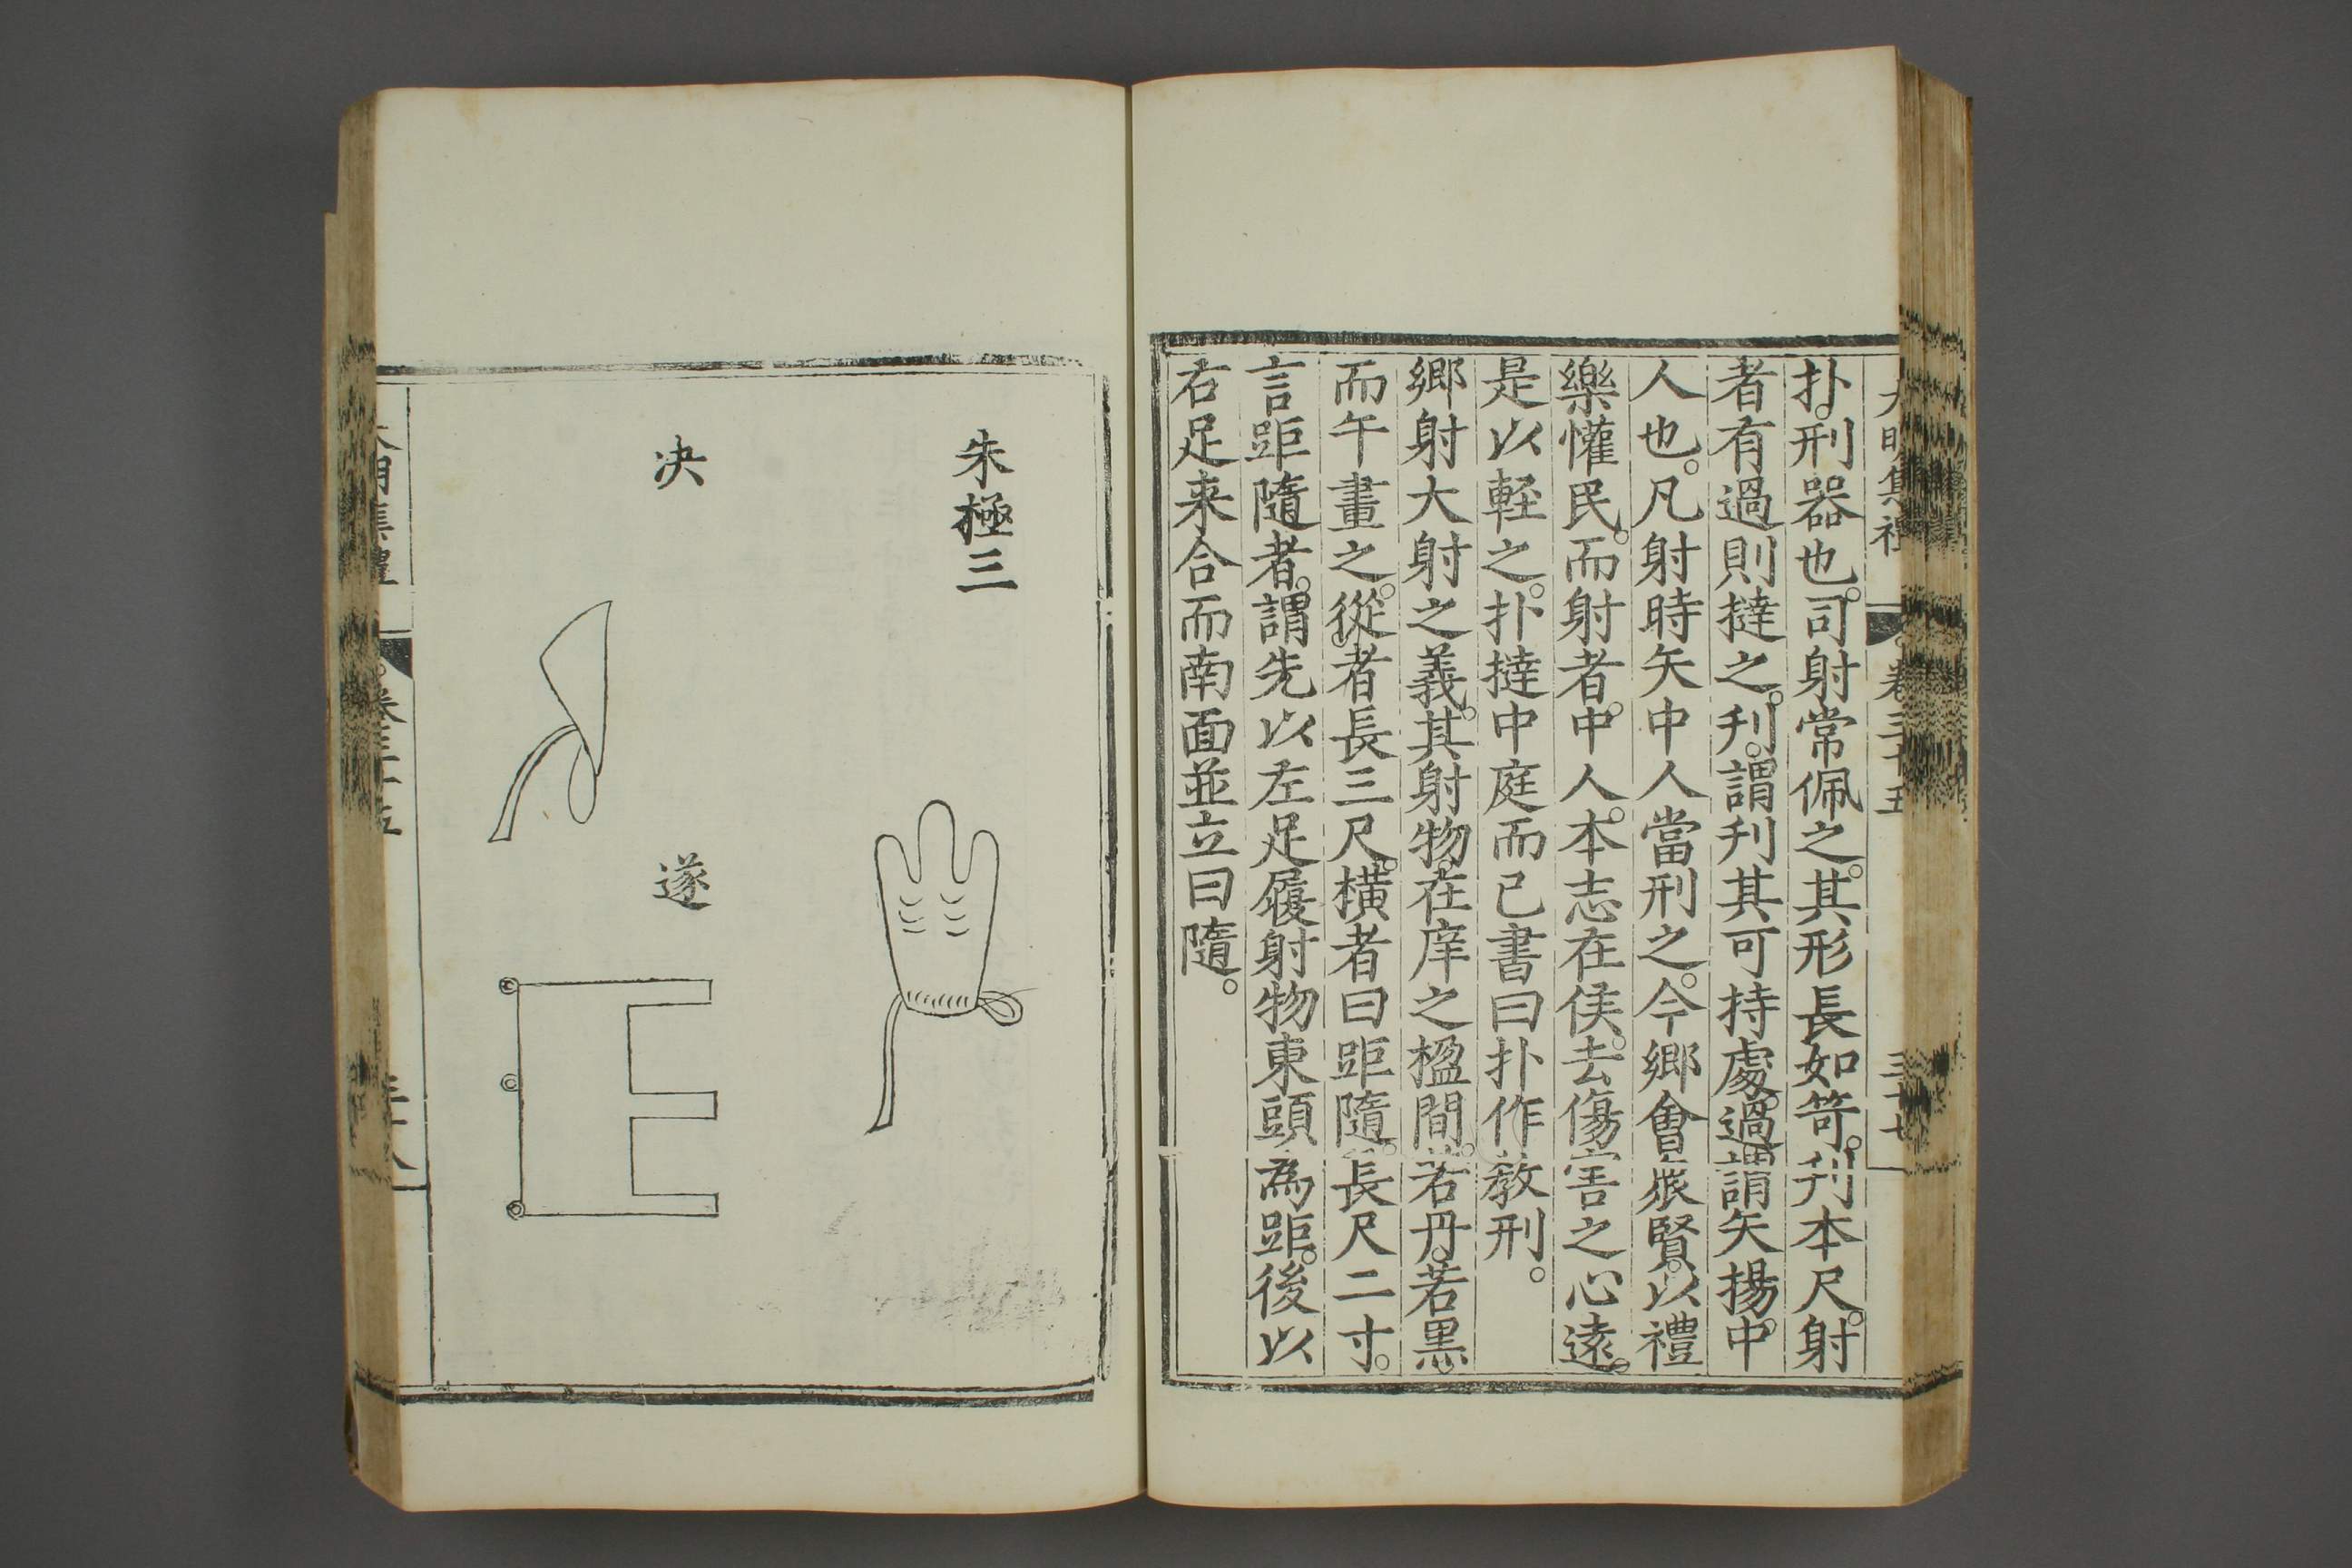 大明集禮 卷三十五 三十七
扑。刑器也。司射常佩之。其形長如笴。刋本尺。射
者有過則撻之。刋。謂刋其可持處。過謂矢揚。中
人也。凡射時矢中人當刑之。今鄉會衆賢。以禮
樂懽民。而射者。中人。本志在侯。去傷害之心遠。
是以輊之。扑撻中庭而已書曰扑作教刑。
鄉射大射之義。其射物。在庠之楹間。若丹。若黑。
而午畫之。從者長三尺。橫者曰距隨。長尺二寸。
言距隨者。謂先以左足履射物東頭為距。後以
右足来合而南面並立曰隨。
朱極三
决
遂
大明集禮 卷三十五 三十八